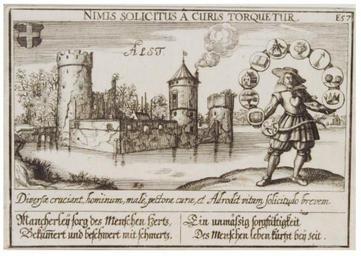 NIMIS SOLICITUS Â CURIS TORQUETUR.
E57
ÄLST.
Diversæ cruciant, hominum, male, pectora curæ, et Abrodit vitam solicitudo brevem.
Mancherley sorg des Menschen Herts,
Bekümert und beschwert mit schmerts.
Ein unmässig sorgfältigkeit
Des Menschen leben kürtzt bey seit.